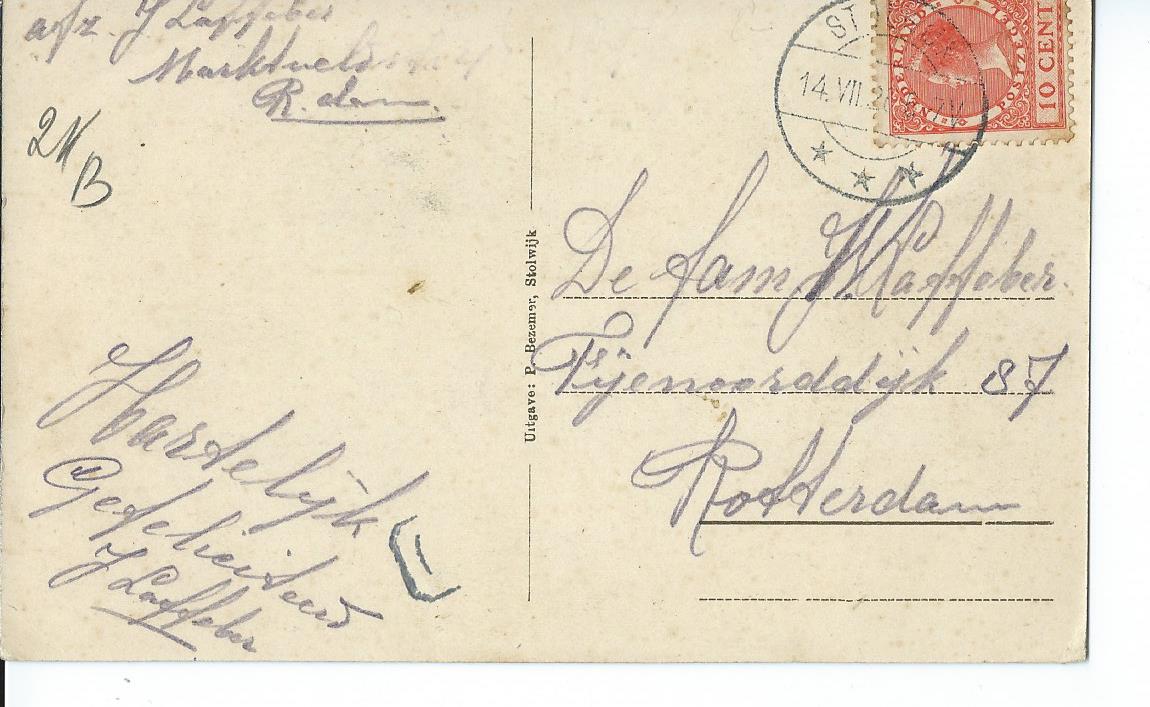 afz. J Laffeber
R. dam.
Hartelijk
Gefeliciteerd
J Laffeber
Uitgave: P. Bezemer, Stolwijk
ST
14.VII.2
NEDERLAND
POSTZEGEL
10 CENT
De fam Laffeber.
Fijenoorddijk 87
Rotterdam